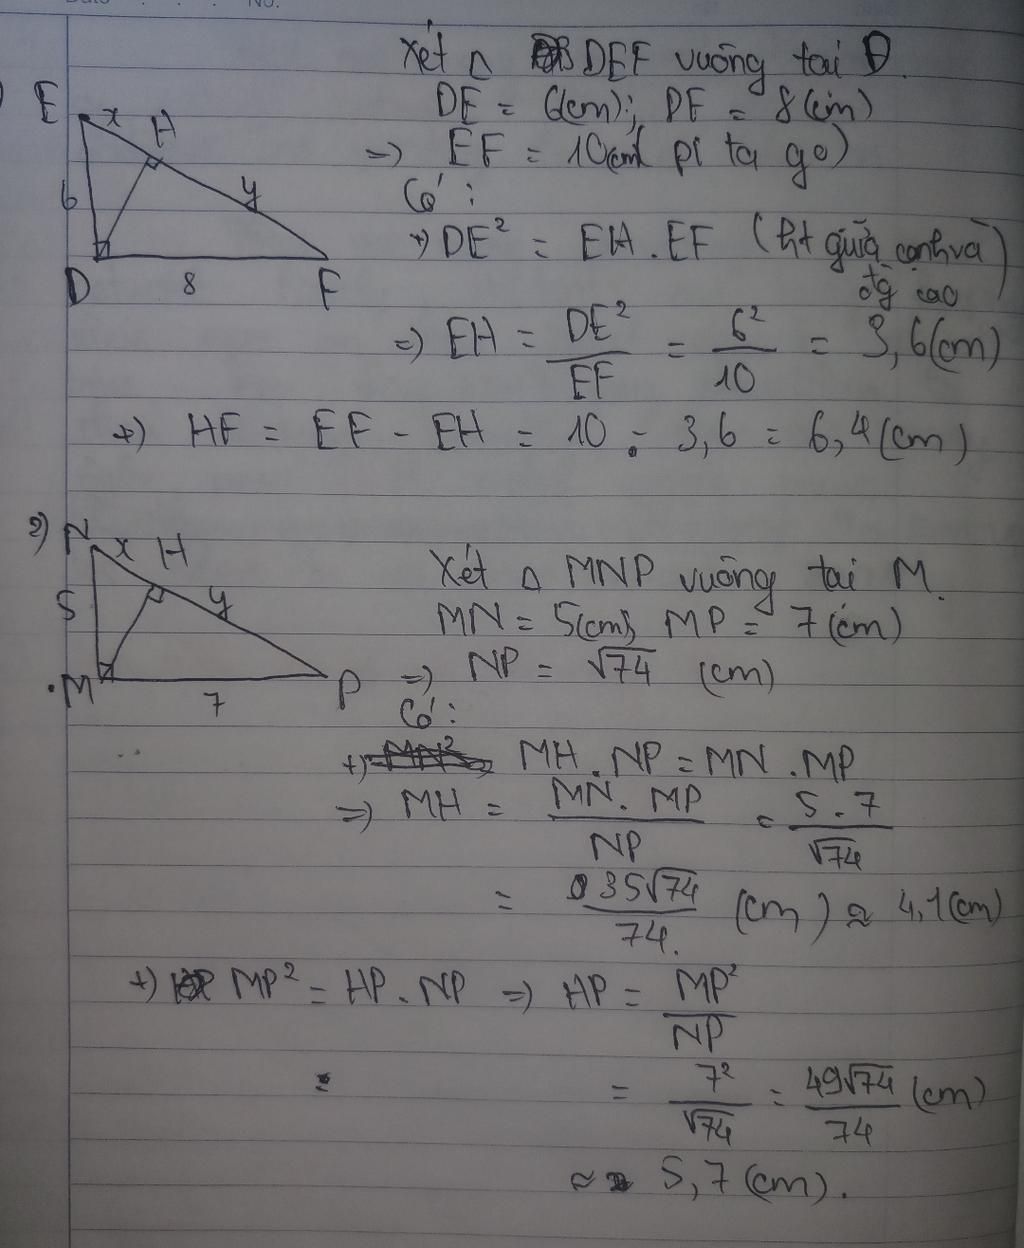 No.
Xét Δ DEF vuông tại D.
DE = 6(cm); DF = 8(cm)
=> EF = 10(cm) (pi ta go)
Có :
+) DE² = EH . EF (ht giữa cạnh và
đg cao)
=> EH = DE²/EF = 6²/10 = 3,6(cm)
+) HF = EF - EH = 10 - 3,6 = 6,4(cm)
E x H
6 y
D 8 F
2) N x H
5 y
M 7 P
Xét Δ MNP vuông tại M.
MN = 5(cm), MP = 7(cm)
=> NP = √74 (cm)
Có :
+) MH . NP = MN . MP
=> MH = MN . MP/NP = 5 . 7/√74
= 35√74/74 (cm) ≈ 4,1(cm)
+) MP² = HP . NP => HP = MP²/NP
= 7²/√74 = 49√74/74 (cm)
≈ 5,7(cm).